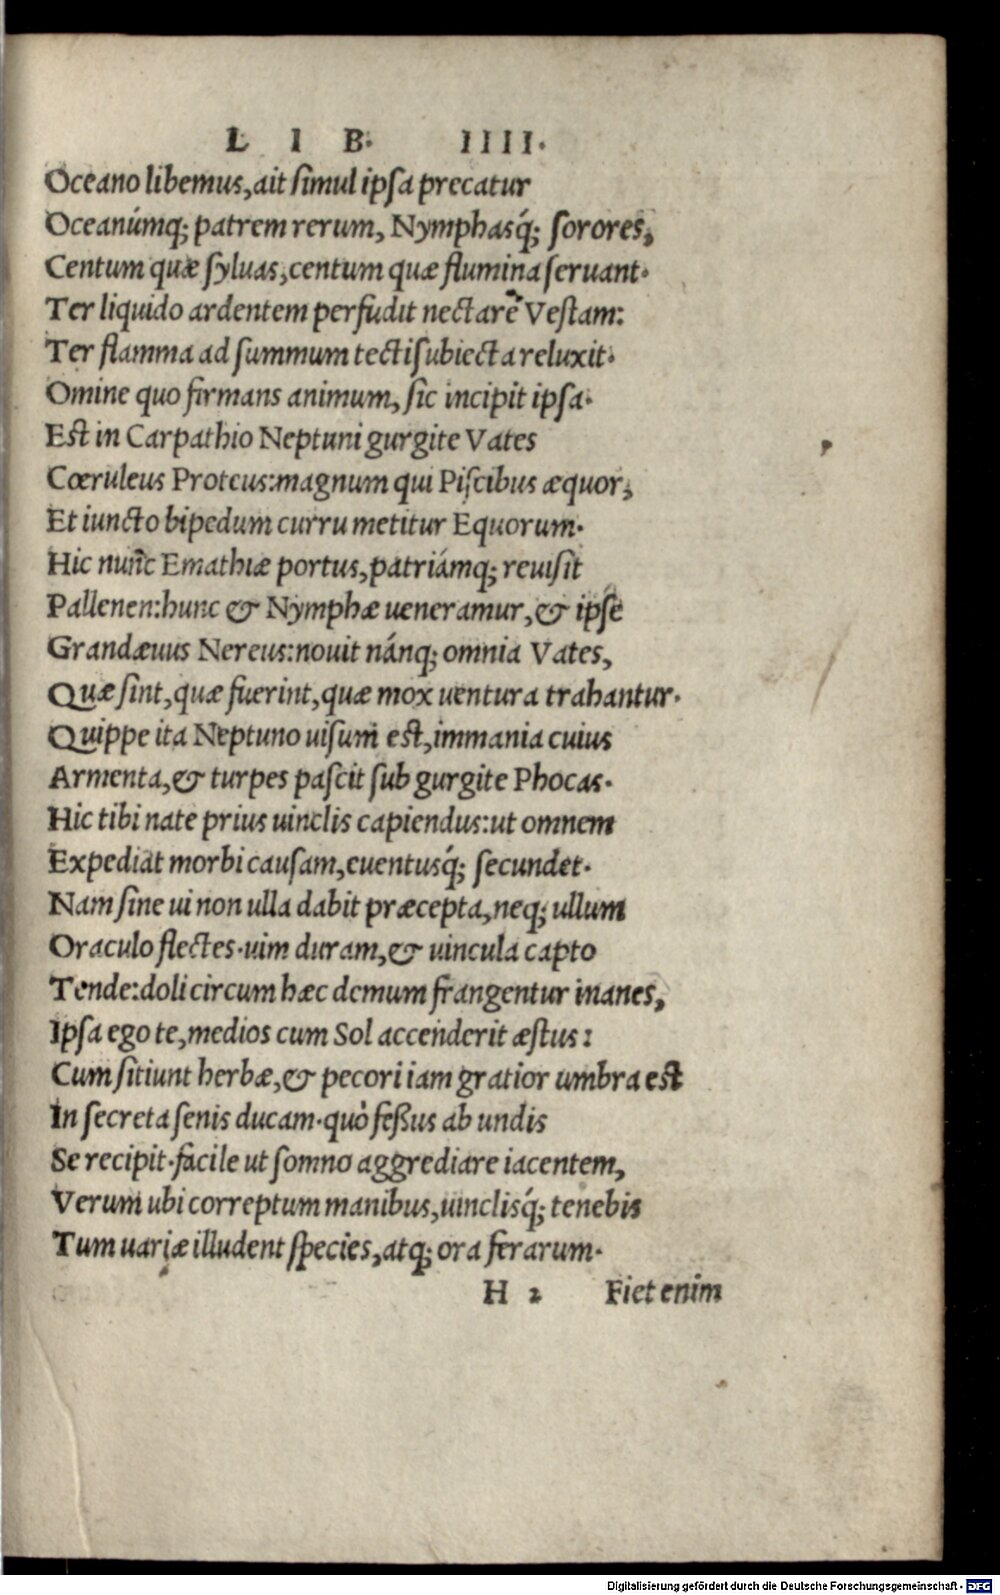 L I B. IIII.
Oceano libemus, ait simul ipsa precatur
Oceanúmq; patrem rerum, Nymphasq́; sorores,
Centum quæ syluas, centum quæ flumina seruant.
Ter liquido ardentem perfudit nectare Vestam:
Ter flamma ad summum tecti subiecta reluxit.
Omine quo firmans animum, sic incipit ipsa.
Est in Carpathio Neptuni gurgite Vates
Cœruleus Proteus: magnum qui Piscibus æquor,
Et iuncto bipedum curru metitur Equorum.
Hic nunc Emathiæ portus, patriámq; reuisit
Pallenen: hunc & Nymphæ ueneramur, & ipse
Grandæuus Nereus: nouit nánq; omnia Vates,
Quæ sint, quæ fuerint, quæ mox uentura trahantur.
Quippe ita Neptuno uisum est, immania cuius
Armenta, & turpes pascit sub gurgite Phocas.
Hic tibi nate prius uinclis capiendus: ut omnem
Expediat morbi causam, euentusq́; secundet.
Nam sine ui non ulla dabit præcepta, neq; ullum
Oraculo flectes. uim duram, & uincula capto
Tende: doli circum hæc demum frangentur inanes,
Ipsa ego te, medios cum Sol accenderit æstus:
Cum sitiunt herbæ, & pecori iam gratior umbra est
In secreta senis ducam. quò fessus ab undis
Se recipit. facile ut somno aggrediare iacentem,
Verum ubi correptum manibus, uinclisq́; tenebis
Tum uariæ illudent species, atq; ora ferarum.
H 2 Fiet enim
Digitalisierung gefördert durch die Deutsche Forschungsgemeinschaft - DFG